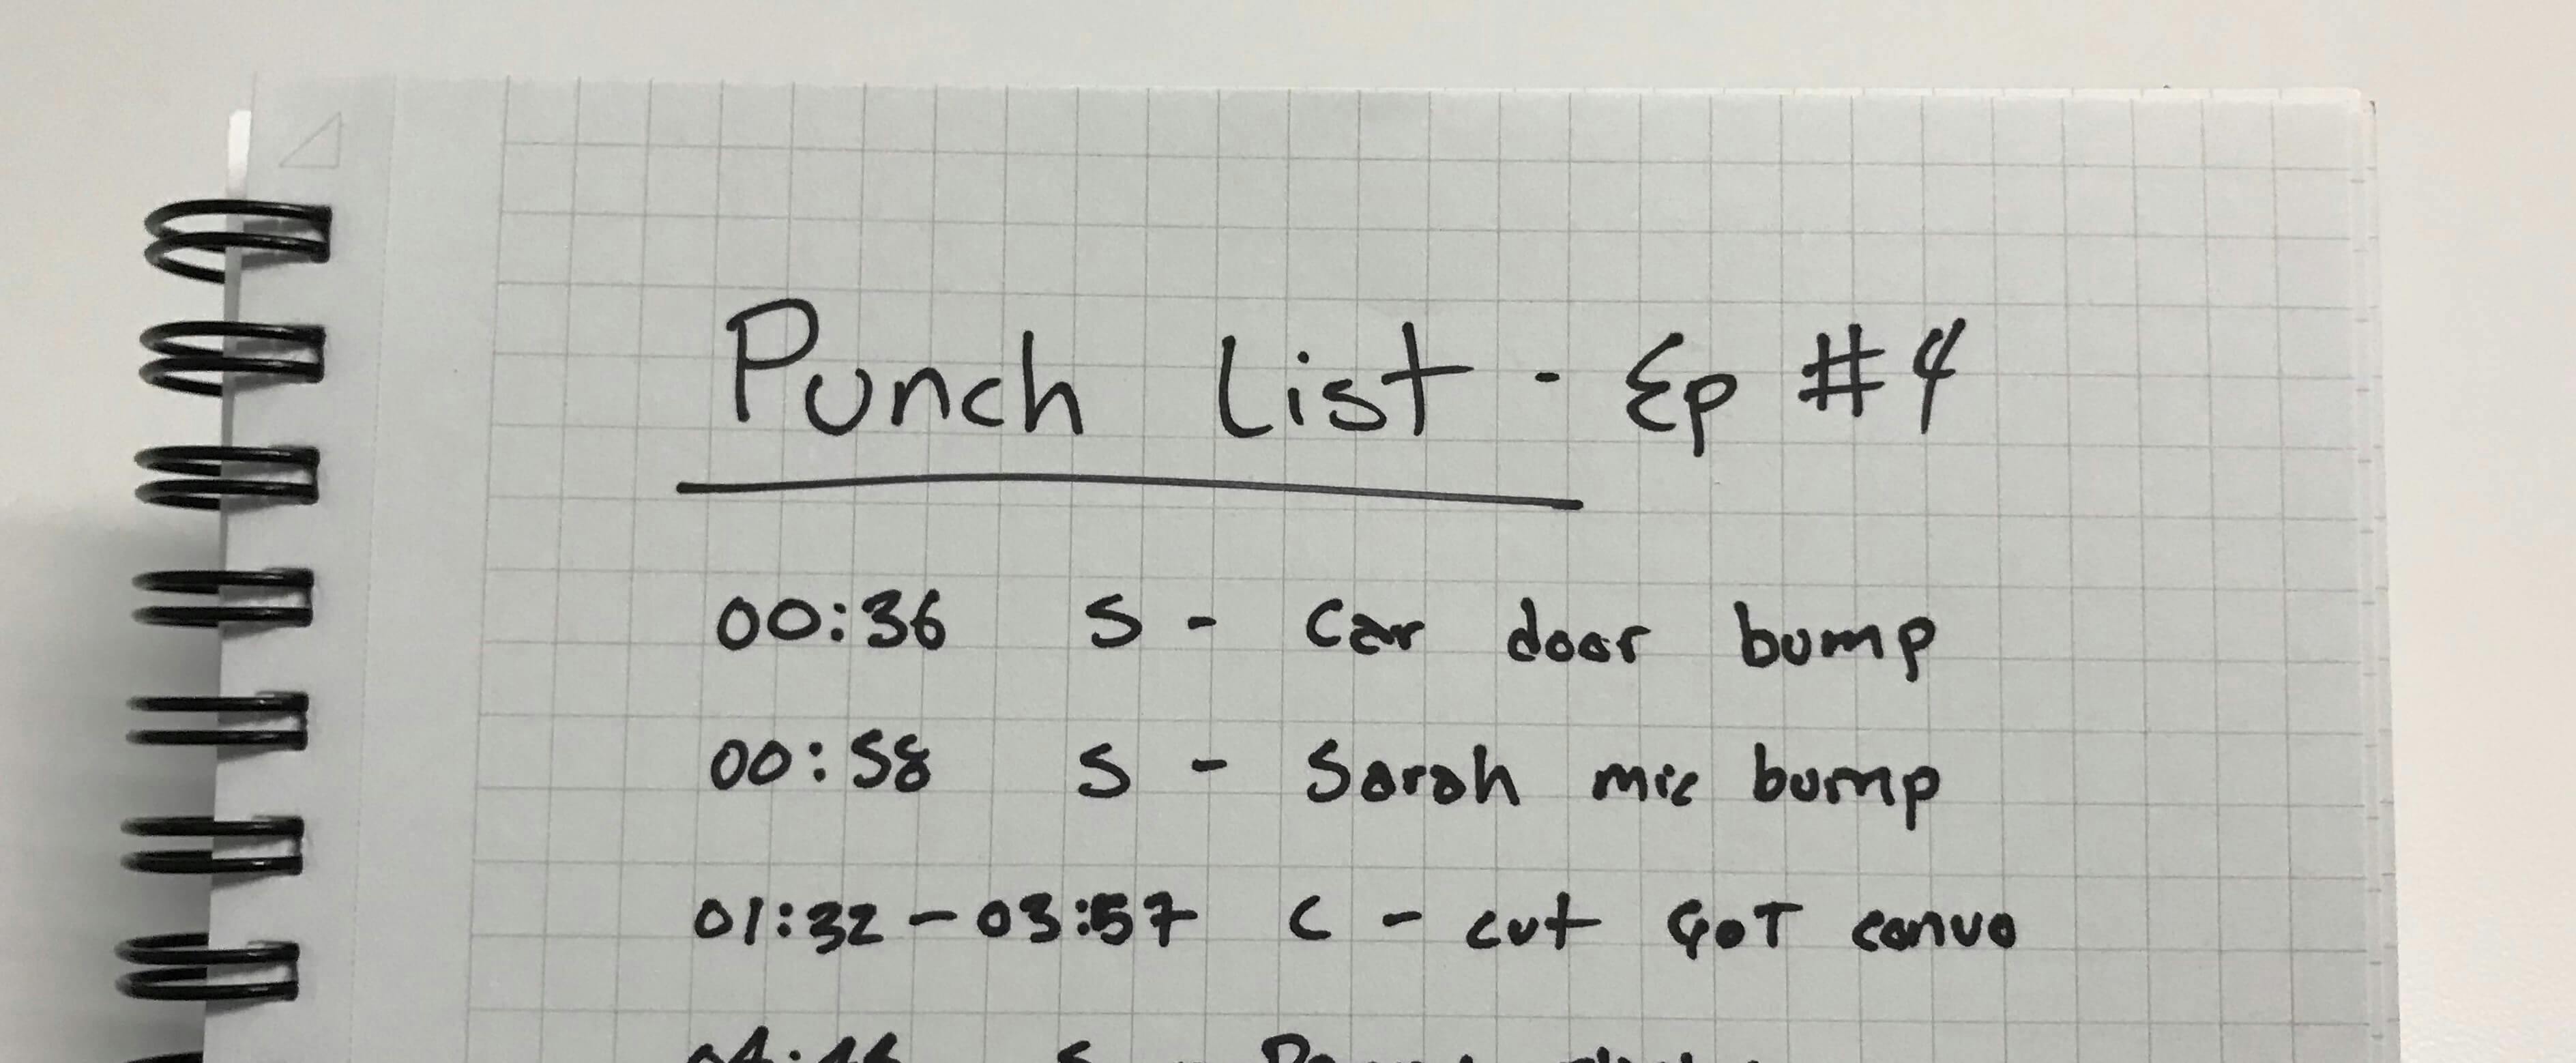 Punch List - Ep #4
00:36 S - Car door bump
00:58 S - Sarah mic bump
01:32 - 03:57 C - cut GOT convo